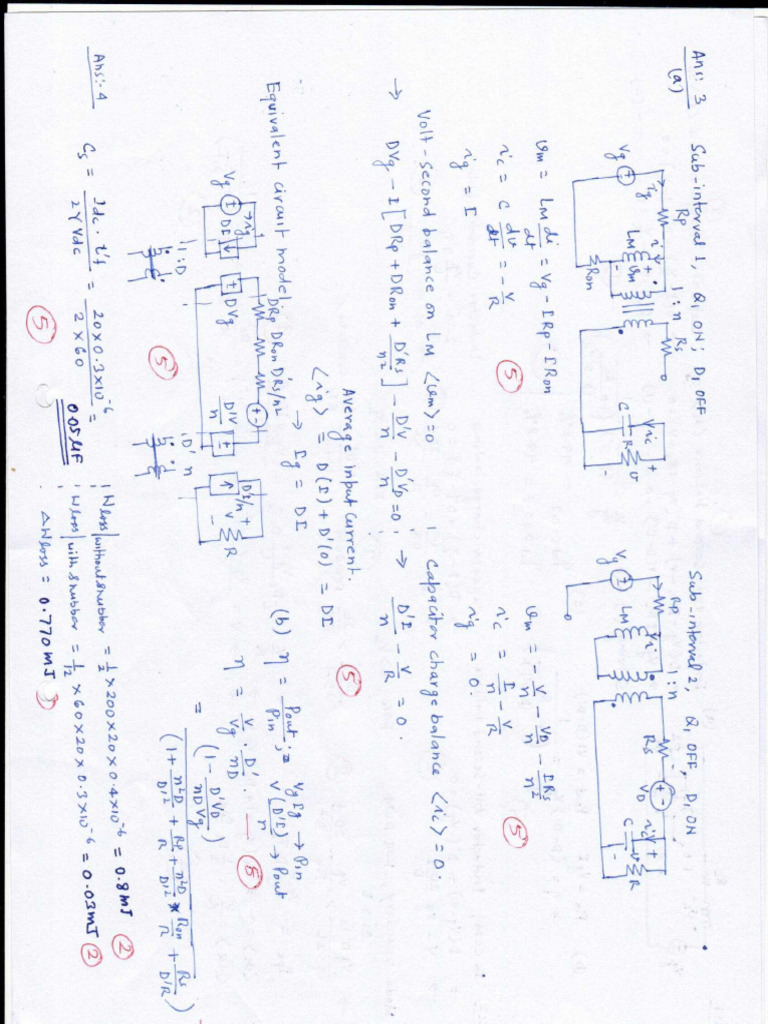 Ans: 3
(a)
Sub-interval 1, Q1 ON; D1 OFF
Sub-interval 2; Q1 OFF, D1 ON
Rp 1:n Rs
ig i
Vg LM + vm - Ron
C ic + R v -
Rp 1:n
Vg LM i Rs VD
C ic + v R -
vm = LM di/dt = Vg - IRp - IRon
ic = C dv/dt = -V/R
ig = I
(5)
vm = -V/n - VD/n - IRs/n²
ic = I/n - V/R
ig = 0.
(5)
Volt-second balance on LM <vm> = 0 | Capacitor charge balance <ic> = 0.
→ DVg - I[DRp + DRon + D'Rs/n²] - D'V/n - D'VD/n = 0; → D'I/n - V/R = 0.
(5)
Average input current.
<ig> = D(I) + D'(0) = DI
→ Ig = DI
Equivalent circuit model
DRp DRon D'Rs/n²
Vg ig DI DVg D'V/n D'I/n + V - R
1:D D':n
(5)
(b) η = Pout/Pin; VgIg → Pin
V(D'I/n) → Pout
η = V/Vg · D'/nD.
= (1 - D'VD/nDVg) / (1 + n²D/D'² Rp/R + n²D/D'² * Ron/R + Rs/D'R)
(5)
Ans:-4
Cs = Idc · tf / 2 Vdc = 20 × 0.3×10⁻⁶ / 2×60 =
0.05 µF
(5)
Wloss|without snubber = 1/2 × 200×20×0.4×10⁻⁶ = 0.8mJ (2)
Wloss|with snubber = 1/2 × 60×20×0.3×10⁻⁶ = 0.03mJ (2)
ΔWloss = 0.770 mJ